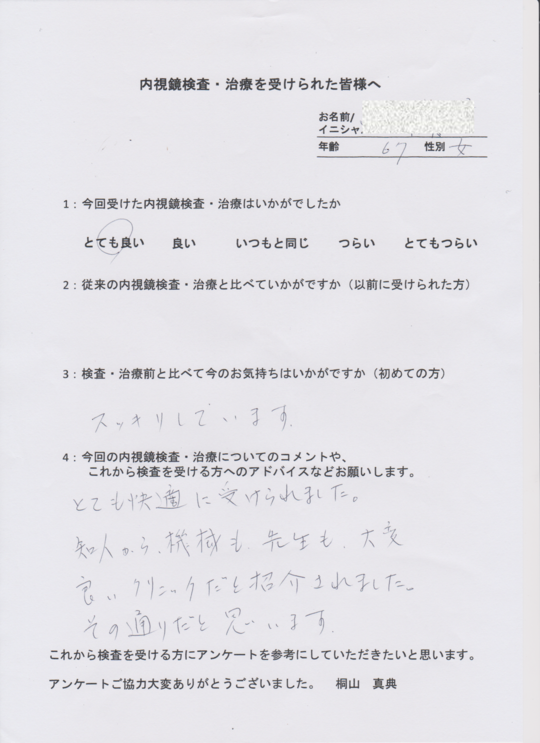 内視鏡検査・治療を受けられた皆様へ
お名前/
イニシャ
年齢 67 性別 女
1:今回受けた内視鏡検査・治療はいかがでしたか
とても良い 良い いつもと同じ つらい とてもつらい
2:従来の内視鏡検査・治療と比べていかがですか(以前に受けられた方)
3:検査・治療前と比べて今のお気持ちはいかがですか(初めての方)
スッキリしています。
4:今回の内視鏡検査・治療についてのコメントや、
これから検査を受ける方へのアドバイスなどお願いします。
とても快適に受けられました。
知人から、機械も、先生も、大変
良いクリニックだと紹介されました。
その通りだと思います。
これから検査を受ける方にアンケートを参考にしていただきたいと思います。
アンケートご協力大変ありがとうございました。 桐山 真典